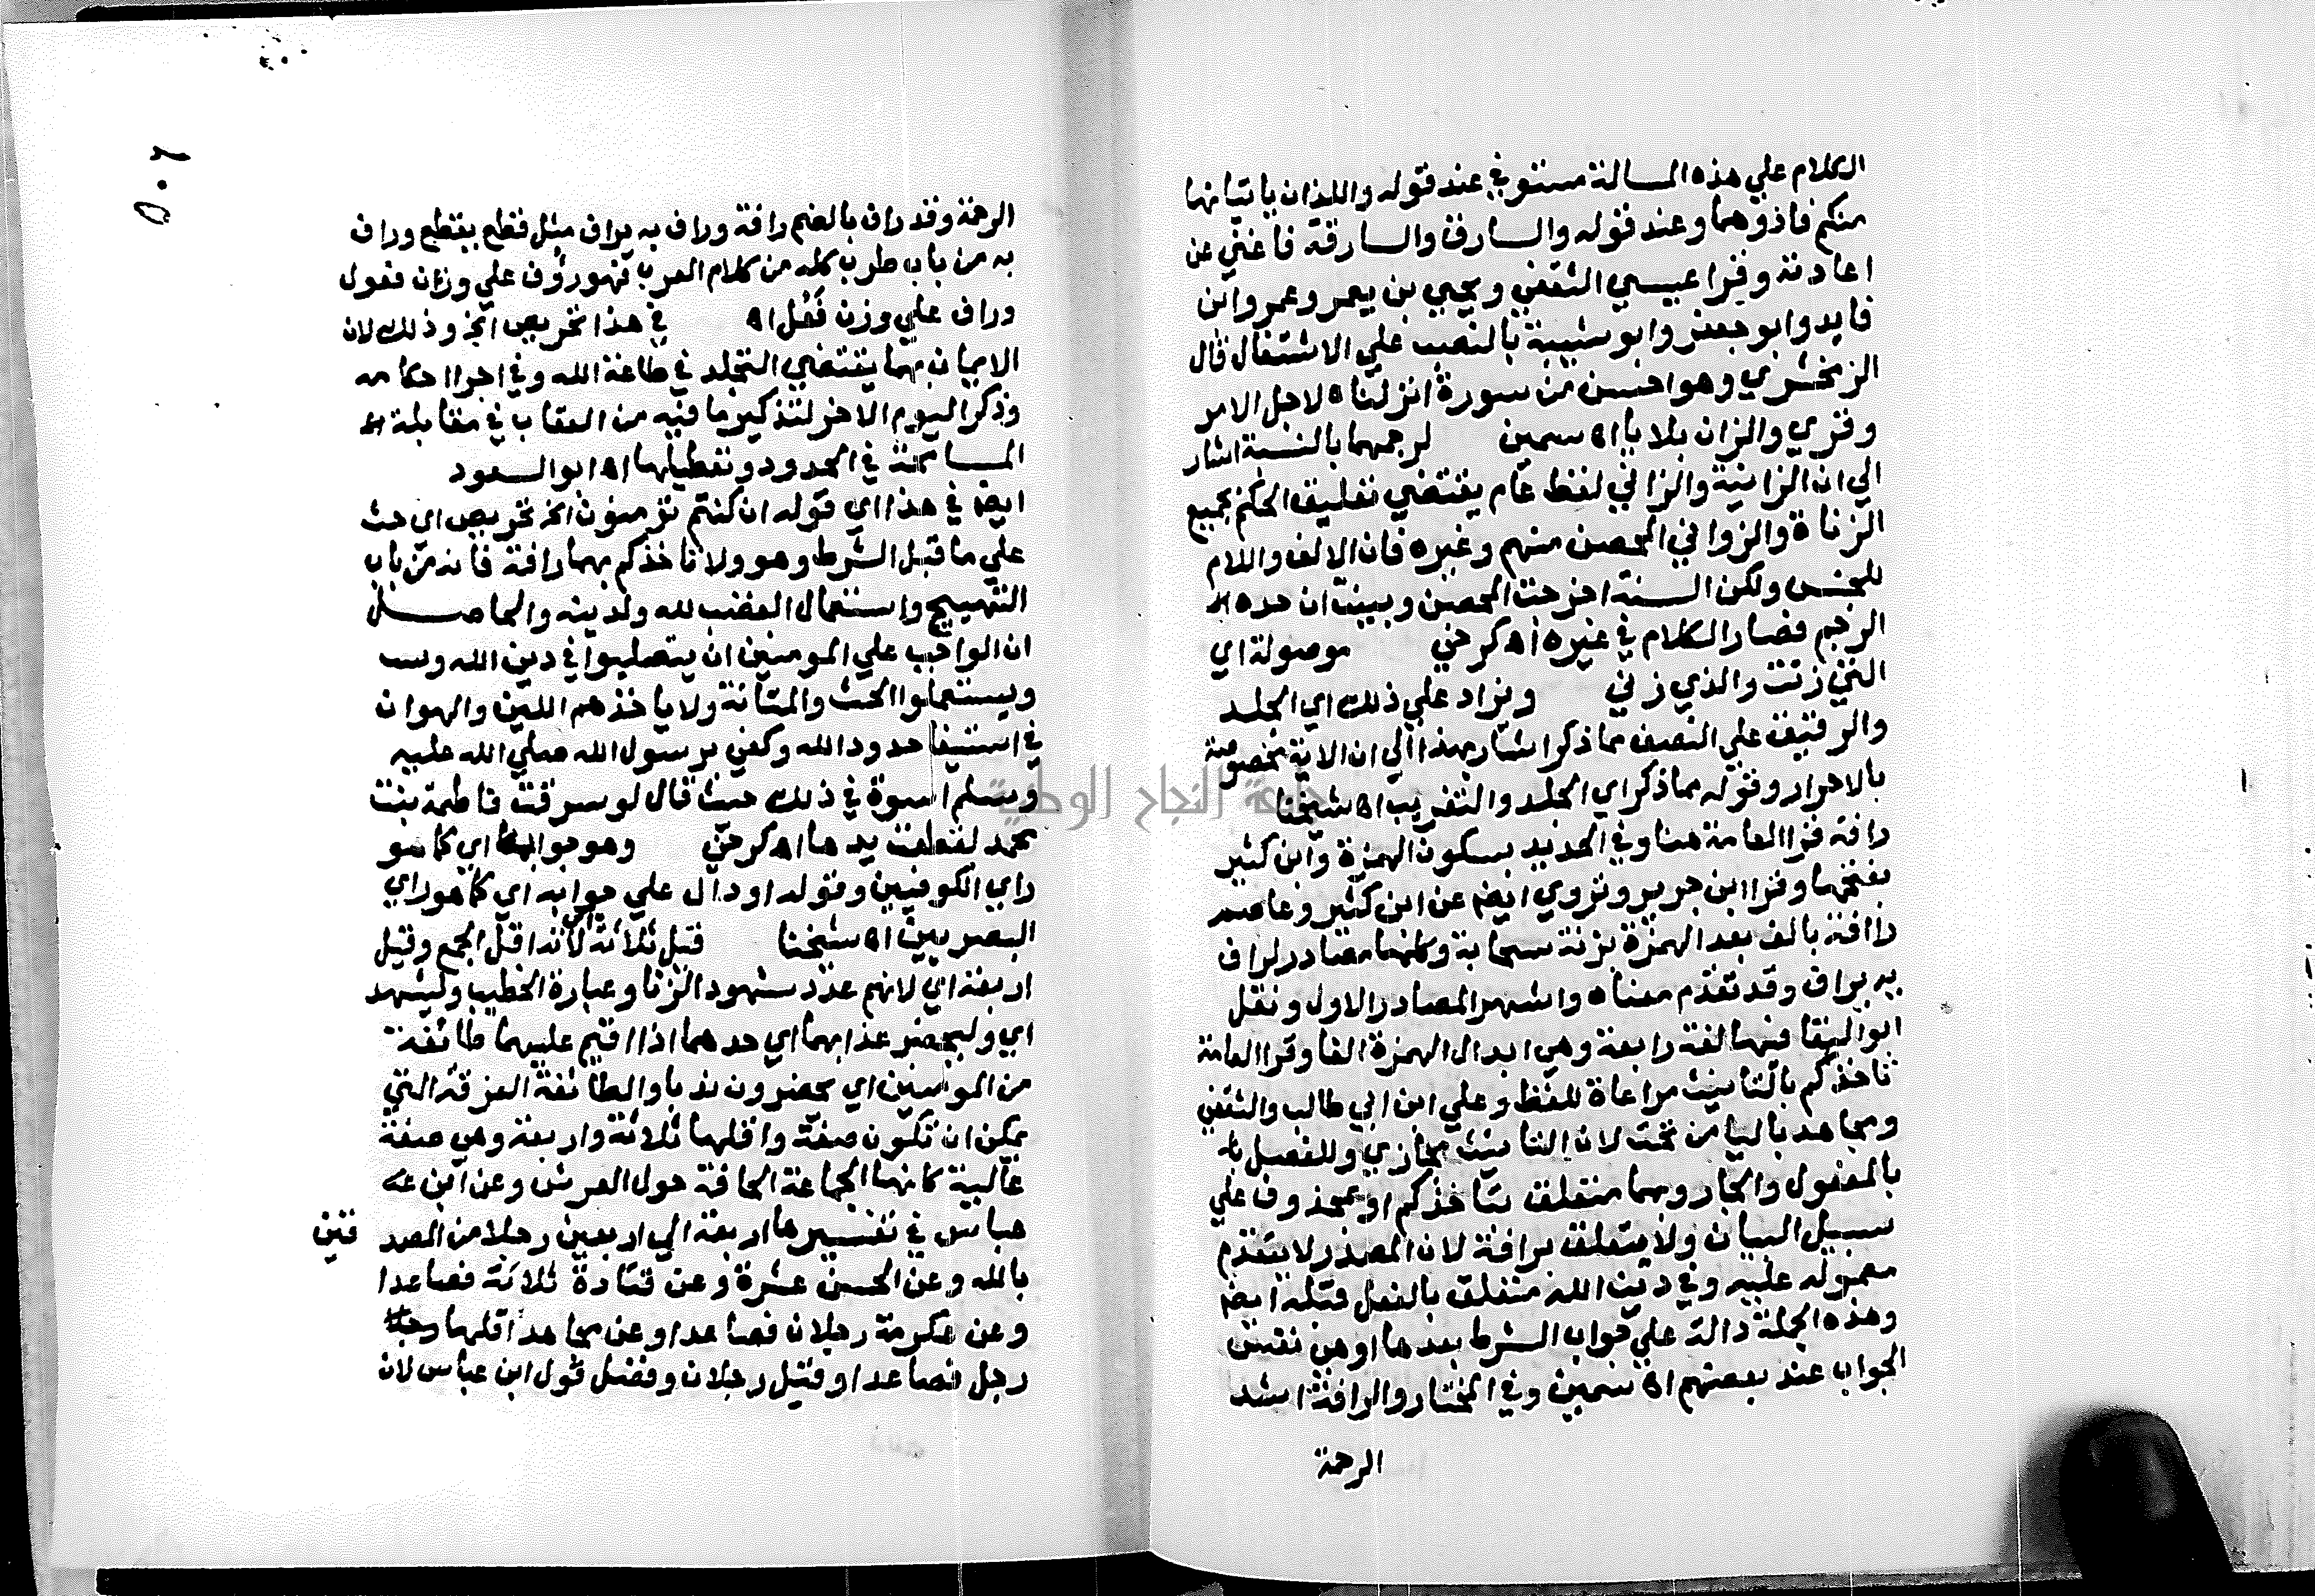 الكلام علي هذه المسالة مستوفي عند قوله واللذان ياتيانها
منكم فاذوهما وعند قوله والسارق والسارقة فاغني عن
اعادته وقرا عيسي الثقفي ويحيي بن يعمر وعمرو ابن
فايد وابو جعفر وابو شيبة بالنصب علي الاشتغال قال
الزمخشري وهو احسن من سورة انزلناه لاجل الامر
وقري والزان بلا يا اه سمين لرجمهما بالسنة اشار
الي ان الزانية والزاني لفظ عام يقتضي تعليق الحكم بجميع
الزناة والزواني المحصن منهم وغيره فان الالف واللام
للجنس ولكن السنة اخرجت المحصن وبينت ان حده
الرجم فصار الكلام في غيره اه كرخي موصولة اي
التي زنت والذي زني ويزاد علي ذلك اي الجلد
والرقيق علي النصف مما ذكر اشار بهذا الي ان الاية مخصوصة
بالاحرار وقوله مما ذكر اي الجلد والتغريب اه شيخنا
رافة قرا العامة هنا وفي الحديد بسكون الهمزة وابن كثير
بفتحها وقرا ابن جرير وتروي ايضا عن ابن كثير وعاصم
راافة بالف بعد الهمزة بزنة سحابة وكلها مصادر لراف
به يراف وقد تقدم معناه واشهر المصادر الاول ونقل
ابو البقا فيها لغة رابعة وهي ابدال الهمزة الفا وقرا العامة
تاخذكم بالتانيث مراعاة للفظ وعلي ابن ابي طالب والثقفي
ومجاهد باليا من تحت لان التانيث مجازي وللفصل با
بالمفعول والجار وبهما متعلق بتاخذكم او بمحذوف علي
سبيل البيان ولا يتعلق برافة لان المصدر لا يتقدم
معموله عليه وفي دين الله متعلق بالفعل قبله ايضا
وهذه الجملة دالة علي جواب الشرط بعدها او هي نفس
الجواب عند بعضهم اه سمين وفي المختار والرافة اشد
الرحمة
٥٠٦
الرحمة وقد راف بالضم رافة وراف به يراف مثل قطع يقطع وراف
به من باب طرب كله من كلام العرب فهو رؤف علي وزان فعول
وراف علي وزن فَعُل اه في هذا تحريص الخ وذلك لان
الايمان بهما يقتضي التجلد في طاعة الله وفي اجرا احكامه
وذكر اليوم الاخر لتذكير ما فيه من العقاب في مقابلة
المسامحة في الحدود وتعطيلها اه ابو السعود
ايضا في هذا اي قوله ان كنتم تؤمنون الخ تحريص اي حث
علي ما قبل الشرط وهو ولا تاخذكم بهما رافة فانه من باب
التهييج واستعمال الغضب لله ولدينه والحاصل
ان الواجب علي المومنين ان يتصلبوا في دين الله وسـ
ويستعملوا الحث والمتانة ولا ياخذهم اللين والهوان
في استيفا حدود الله وكفي برسول الله صلي الله عليه
وسلم اسوة في ذلك حيث قال لو سرقت فاطمة بنت
محمد لقطعت يدها اه كرخي وهو جوابه اي كما هو
راي الكوفيين وقوله او دال علي جوابه اي كما هو راي
البصريين اه شيخنا قيل ثلاثة اي لانه اقل الجمع وقيل
اربعة اي لانهم عدد شهود الزنا وعبارة الخطيب وليشهد
اي وليحضر عذابهما اي حدهما اذا اقيم عليهما طائفة
من المومنين اي يحضرون ندبا والطائفة الفرقة التي
يمكن ان تكون صفة واقلها ثلاثة واربعة وهي صفة
غالبة كانها الجماعة الحافة حول العرش وعن ابن عـ
عباس في تفسيرها اربعة الي اربعين رجلا من المصد قين
بالله وعن الحسن عشرة وعن قتادة ثلاثة فصاعدا
وعن عكرمة رجلان فصاعدا وعن مجاهد اقلها
رجل فصاعدا وقيل رجلان وفضل قول ابن عباس لان
جامعة النجاح الوطنية